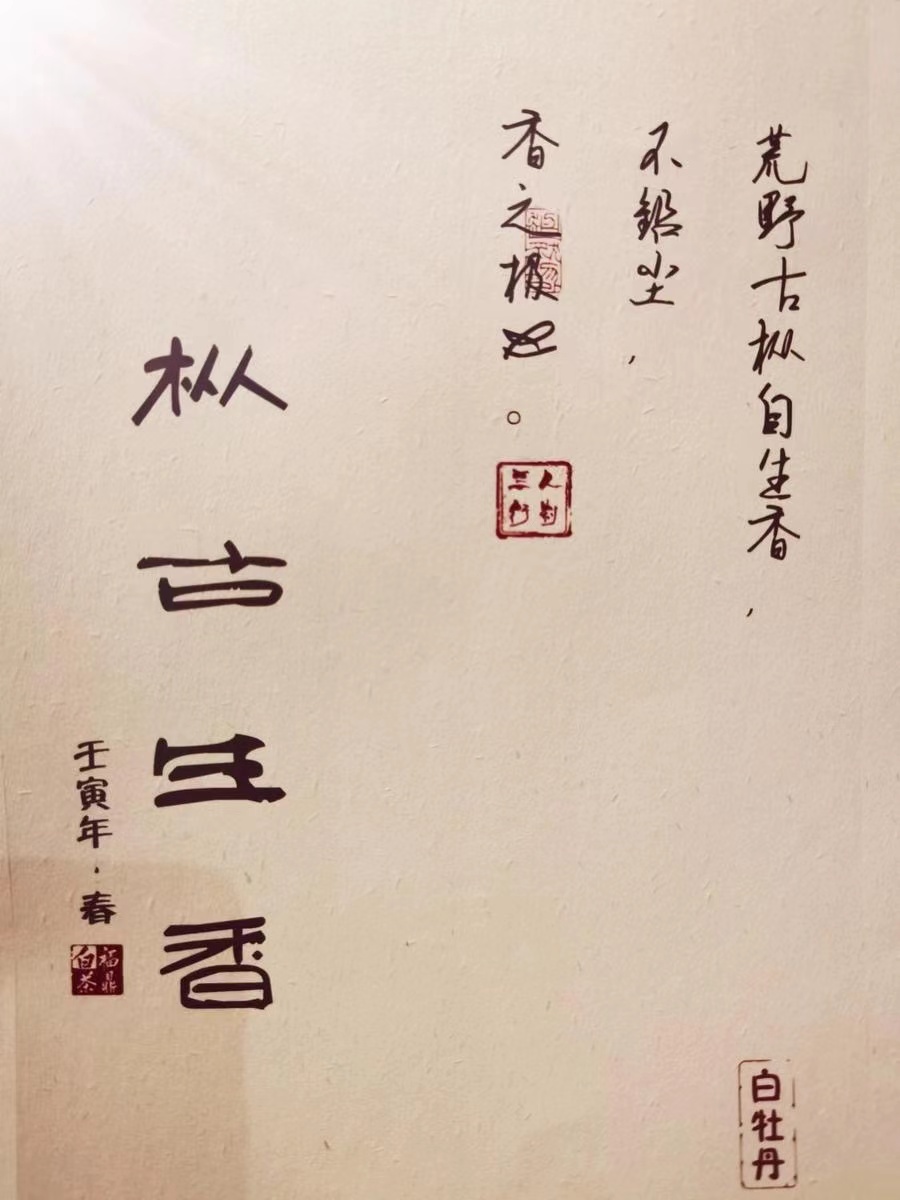 荒野古枞自生香，
不铅尘，
香之极也。
枞古生香
壬寅年·春
福鼎
白茶
白牡丹